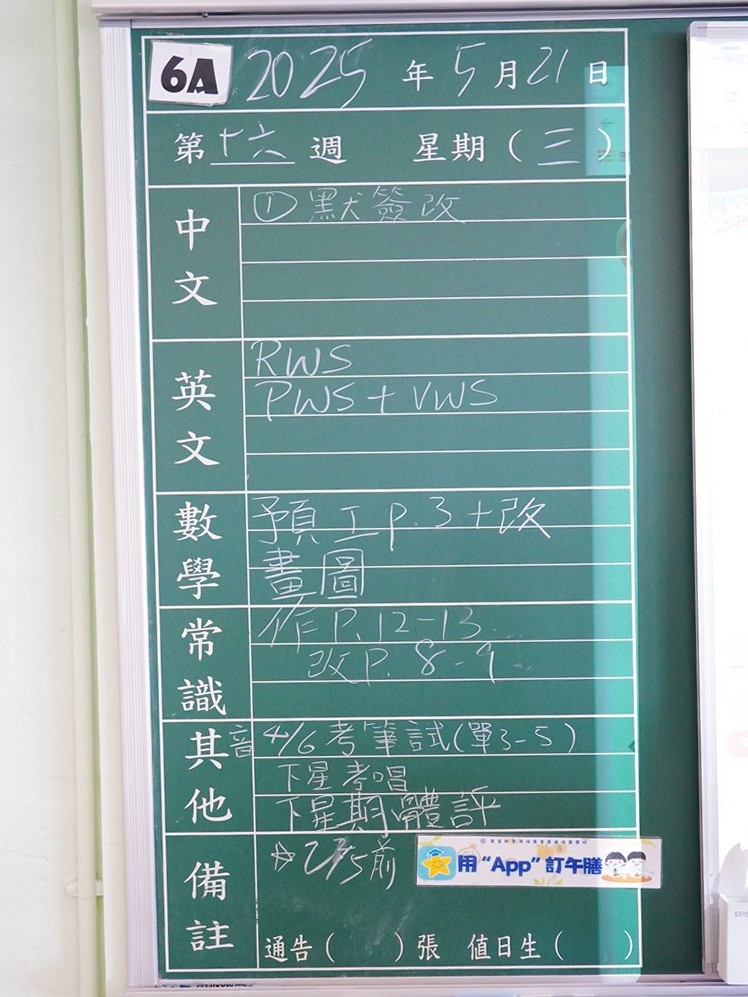 6A 2025 年 5 月 21 日
第 十六 週 星期 ( 三 )
中文 ① 默簽改
英文 RWS
PWS + VWS
數學 預工 p.3 + 改
畫圖
常識 作 P.12-13
改 P.8-9
其他 音 4/6 考筆試(單3-5)
下星考唱
下星期體評
備註 前
用 “App” 訂午膳
通告 ( ) 張 值日生 ( )